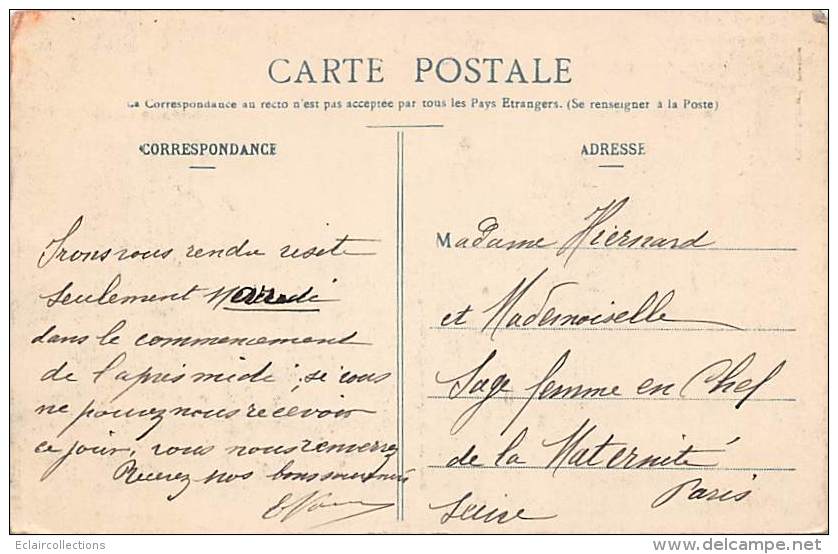 CARTE POSTALE
La Correspondance au recto n'est pas acceptée par tous les Pays Etrangers. (Se renseigner à la Poste)
CORRESPONDANCE
Irons vous rendre visite
seulement
dans le commencement
de l'après midi, si vous
ne pouvez nous recevoir
ce jour, vous nous
Recevez nos bons souvenirs
ADRESSE
Madame Hiernard
et Mademoiselle
Sage femme en Chef
de la Maternité
Paris
Seine
Eclaircollections
www.delcampe.net